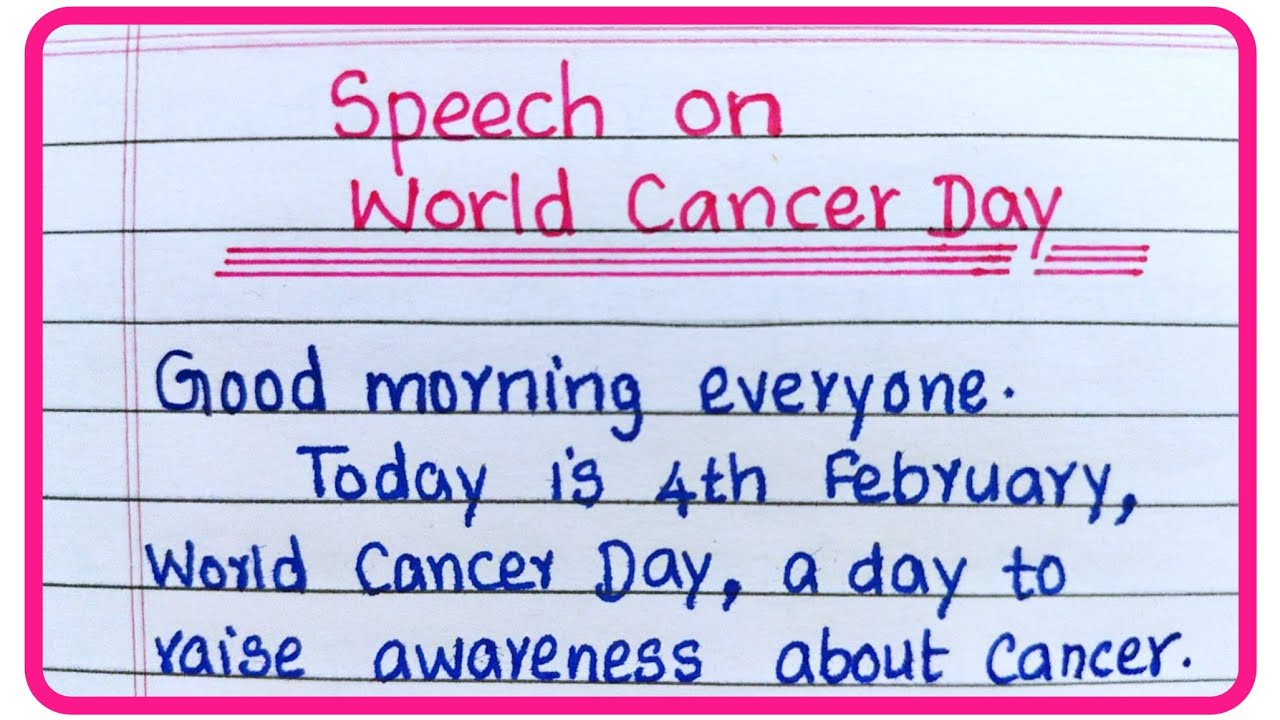 Speech on
World Cancer Day
Good morning everyone.
Today is 4th February,
World Cancer Day, a day to
raise awareness about cancer.